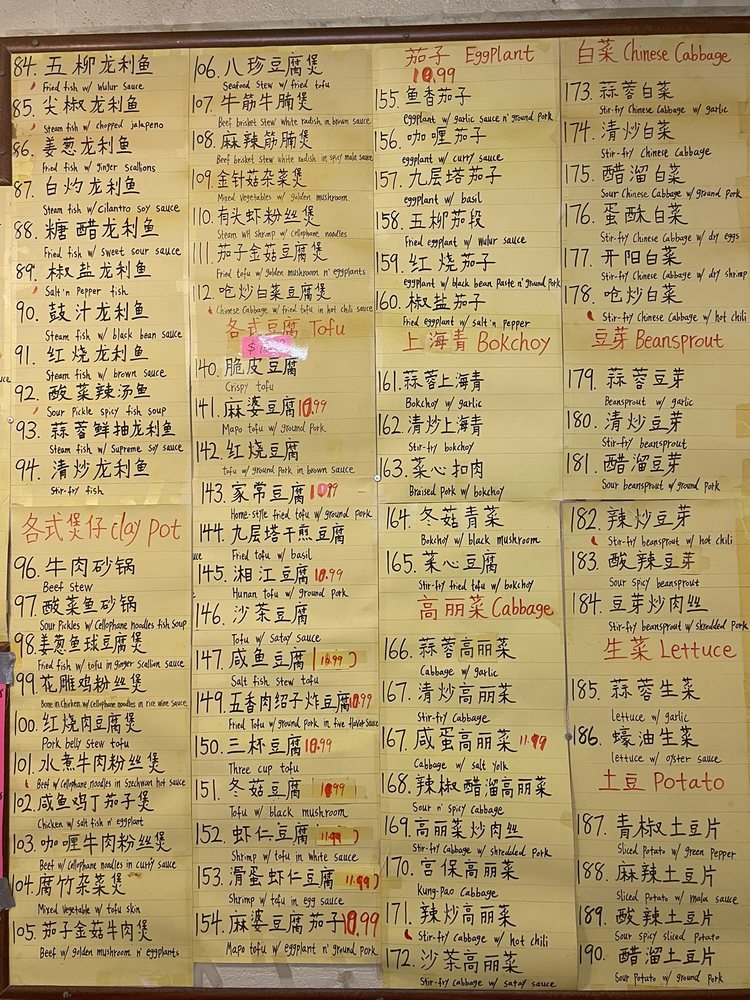 84. 五柳龙利鱼
Fried fish w/ Wulur sauce
85. 尖椒龙利鱼
Steam fish w/ chopped jalapeno
86. 姜葱龙利鱼
Fried fish w/ ginger scallions
87. 白灼龙利鱼
Steam fish w/ Cilantro soy sauce
88. 糖醋龙利鱼
Fried fish w/ sweet sour sauce
89. 椒盐龙利鱼
Salt'n Pepper fish
90. 豉汁龙利鱼
Steam fish w/ black bean sauce
91. 红烧龙利鱼
Steam fish w/ brown sauce
92. 酸菜辣汤鱼
Sour Pickle spicy fish soup
93. 蒜蓉鲜抽龙利鱼
Steam fish w/ Supreme Soy sauce
94. 清炒龙利鱼
Stir-fry fish
各式煲仔 clay pot
96. 牛肉砂锅
Beef Stew
97. 酸菜鱼砂锅
Sour Pickles w/ Cellophane noodles fish Soup
98. 姜葱鱼球豆腐煲
Fried fish w/ tofu in ginger scallion sauce
99. 花雕鸡粉丝煲
Bone in Chicken w/ Cellophane noodles in rice wine Sauce
100. 红烧肉豆腐煲
Pork belly stew tofu
101. 水煮牛肉粉丝煲
Beef w/ Cellophane noodles in Szechwan hot sauce
102. 咸鱼鸡丁茄子煲
Chicken w/ salt fish n' eggplant
103. 咖喱牛肉粉丝煲
Beef w/ Cellophane noodles in curry sauce
104. 腐竹杂菜煲
Mixed Vegetable w/ tofu skin
105. 茄子金菇牛肉煲
Beef w/ golden mushroom n' eggplants
106. 八珍豆腐煲
Seafood Stew w/ fried tofu
107. 牛筋牛腩煲
Beef brisket stew white radish in brown sauce
108. 麻辣筋腩煲
Beef brisket stew white radish in spicy mala sauce
109. 金针菇杂菜煲
Mixed vegetables w/ golden mushroom
110. 有头虾粉丝煲
Steam WH Shrimp w/ Cellophane noodles
111. 茄子金菇豆腐煲
Fried tofu w/ golden mushroom n' eggplants
112. 呛炒白菜豆腐煲
Chinese Cabbage w/ fried tofu in hot chili sauce
各式豆腐 Tofu
140. 脆皮豆腐
Crispy tofu
141. 麻婆豆腐 10.99
Mapo tofu w/ ground Pork
142. 红烧豆腐
tofu w/ ground Pork in brown sauce
143. 家常豆腐 10.99
Home-style fried tofu w/ ground Pork
144. 九层塔干煎豆腐
Fried tofu w/ basil
145. 湘江豆腐 10.99
Hunan tofu w/ ground Pork
146. 沙茶豆腐
Tofu w/ Satay sauce
147. 咸鱼豆腐 10.99
Salt fish Stew tofu
149. 五香肉绍子炸豆腐 10.99
Fried Tofu w/ ground pork in five flavor Sauce
150. 三杯豆腐 10.99
Three cup tofu
151. 冬菇豆腐 10.99
Tofu w/ black mushroom
152. 虾仁豆腐 11.99
Shrimp w/ tofu in white sauce
153. 滑蛋虾仁豆腐 11.99
Shrimp w/ tofu in egg sauce
154. 麻婆豆腐茄子 10.99
Mapo tofu w/ eggplant n' ground Pork
茄子 Eggplant
10.99
155. 鱼香茄子
Eggplant w/ garlic sauce n' ground pork
156. 咖喱茄子
eggplant w/ curry sauce
157. 九层塔茄子
eggplant w/ basil
158. 五柳茄段
Fried eggplant w/ Wulur sauce
159. 红烧茄子
eggplant w/ black bean Paste n' ground Pork
160. 椒盐茄子
Fried eggplant w/ salt'n pepper
上海青 Bokchoy
161. 蒜蓉上海青
Bokchoy w/ garlic
162. 清炒上海青
Stir-fry bokchoy
163. 菜心扣肉
Braised Pork w/ bokchoy
164. 冬菇青菜
Bokchoy w/ black mushroom
165. 菜心豆腐
Stir-fry fried tofu w/ bokchoy
高丽菜 Cabbage
166. 蒜蓉高丽菜
Cabbage w/ garlic
167. 清炒高丽菜
Stir-fry Cabbage
167. 咸蛋高丽菜 11.99
Cabbage w/ salt Yolk
168. 辣椒醋溜高丽菜
Sour n' spicy cabbage
169. 高丽菜炒肉丝
Stir-fry Cabbage w/ shredded Pork
170. 宫保高丽菜
Kung-Pao Cabbage
171. 辣炒高丽菜
Stir-fry cabbage w/ hot chili
172. 沙茶高丽菜
Stir-fry Cabbage w/ satay sauce
白菜 Chinese Cabbage
173. 蒜蓉白菜
Stir-fry Chinese Cabbage w/ garlic
174. 清炒白菜
Stir-fry Chinese Cabbage
175. 醋溜白菜
Sour Chinese Cabbage w/ ground Pork
176. 蛋酥白菜
Stir-fry Chinese Cabbage w/ dry eggs
177. 开阳白菜
Stir-fry Chinese Cabbage w/ dry shrimp
178. 呛炒白菜
Stir-fry Chinese Cabbage w/ hot chili
豆芽 Beansprout
179. 蒜蓉豆芽
Beansprout w/ garlic
180. 清炒豆芽
Stir-fry beansprout
181. 醋溜豆芽
Sour beansprout w/ ground Pork
182. 辣炒豆芽
Stir-fry beansprout w/ hot chili
183. 酸辣豆芽
Sour spicy beansprout
184. 豆芽炒肉丝
Stir-fry beansprout w/ shredded Pork
生菜 Lettuce
185. 蒜蓉生菜
Lettuce w/ garlic
186. 蠔油生菜
lettuce w/ oyster sauce
土豆 Potato
187. 青椒土豆片
Sliced potato w/ green Pepper
188. 麻辣土豆片
Sliced Potato w/ mala sauce
189. 酸辣土豆片
Sour spicy sliced Potato
190. 醋溜土豆片
Sour Potato w/ ground Pork